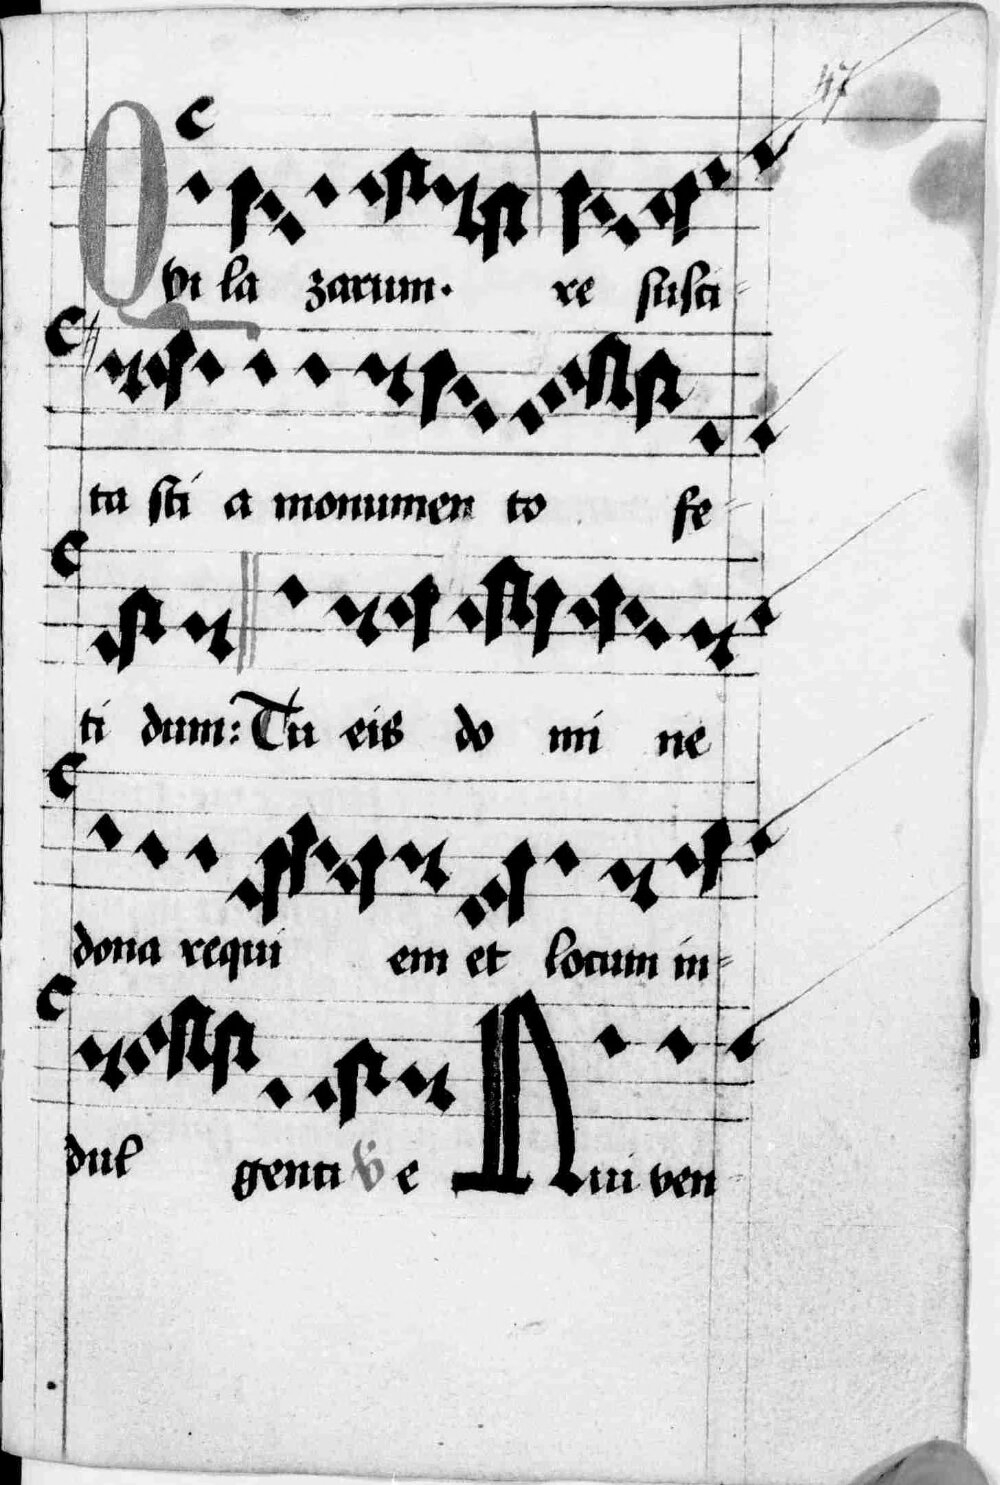 47
Qvi la zarum. re susci-
ta sti a monumen to fe-
ti dum: Tu eis do mi ne
dona requi em et locum in-
dul genti ℣ e Qui ven